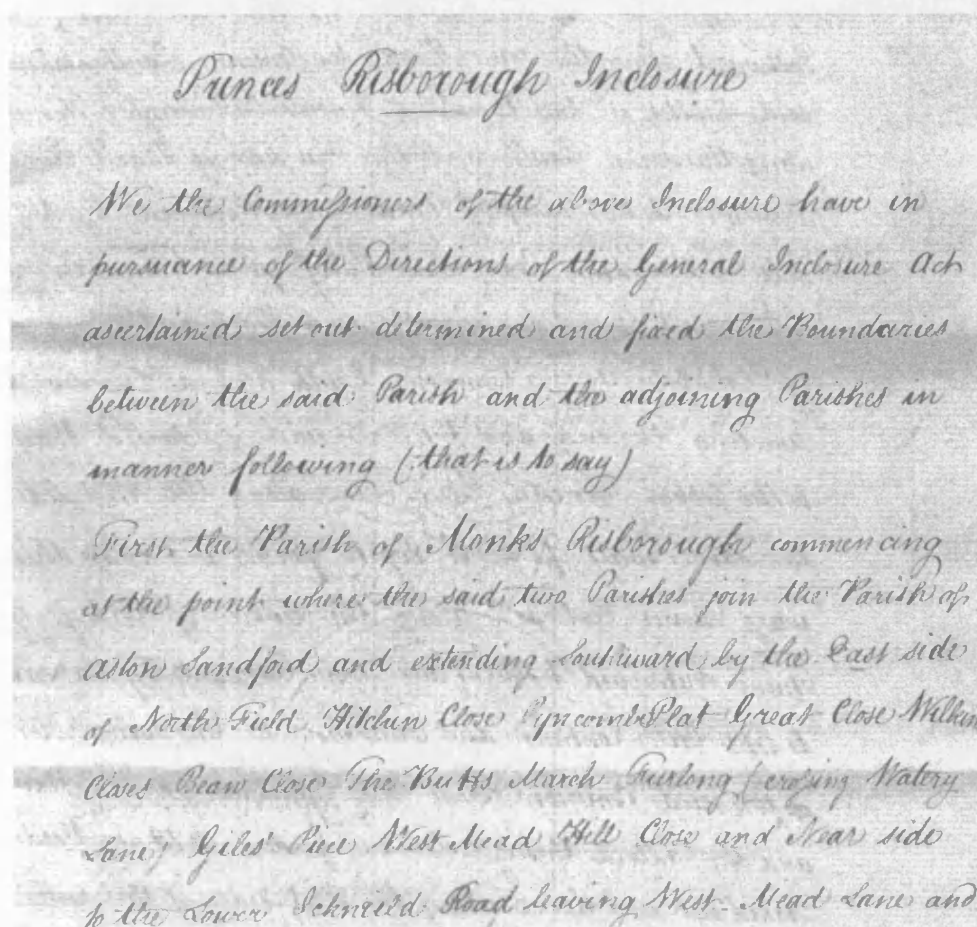 Princes Risborough Inclosure
We the Commissioners of the above Inclosure have in
pursuance of the Directions of the General Inclosure Act
ascertained set out determined and fixed the Boundaries
between the said Parish and the adjoining Parishes in
manner following (that is to say)
First the Parish of Monks Risborough commencing
at the point where the said two Parishes join the Parish of
Aston Sandford and extending Southward by the East side
of North Field Hitchin Close Pyncombe Plat Great Close
Closes Bean Close The Butts March Furlong (crossing Watery
Lane) Giles' Piece West Mead Hill Close and Near side
to the Lower Icknield Road leaving West Mead Lane and